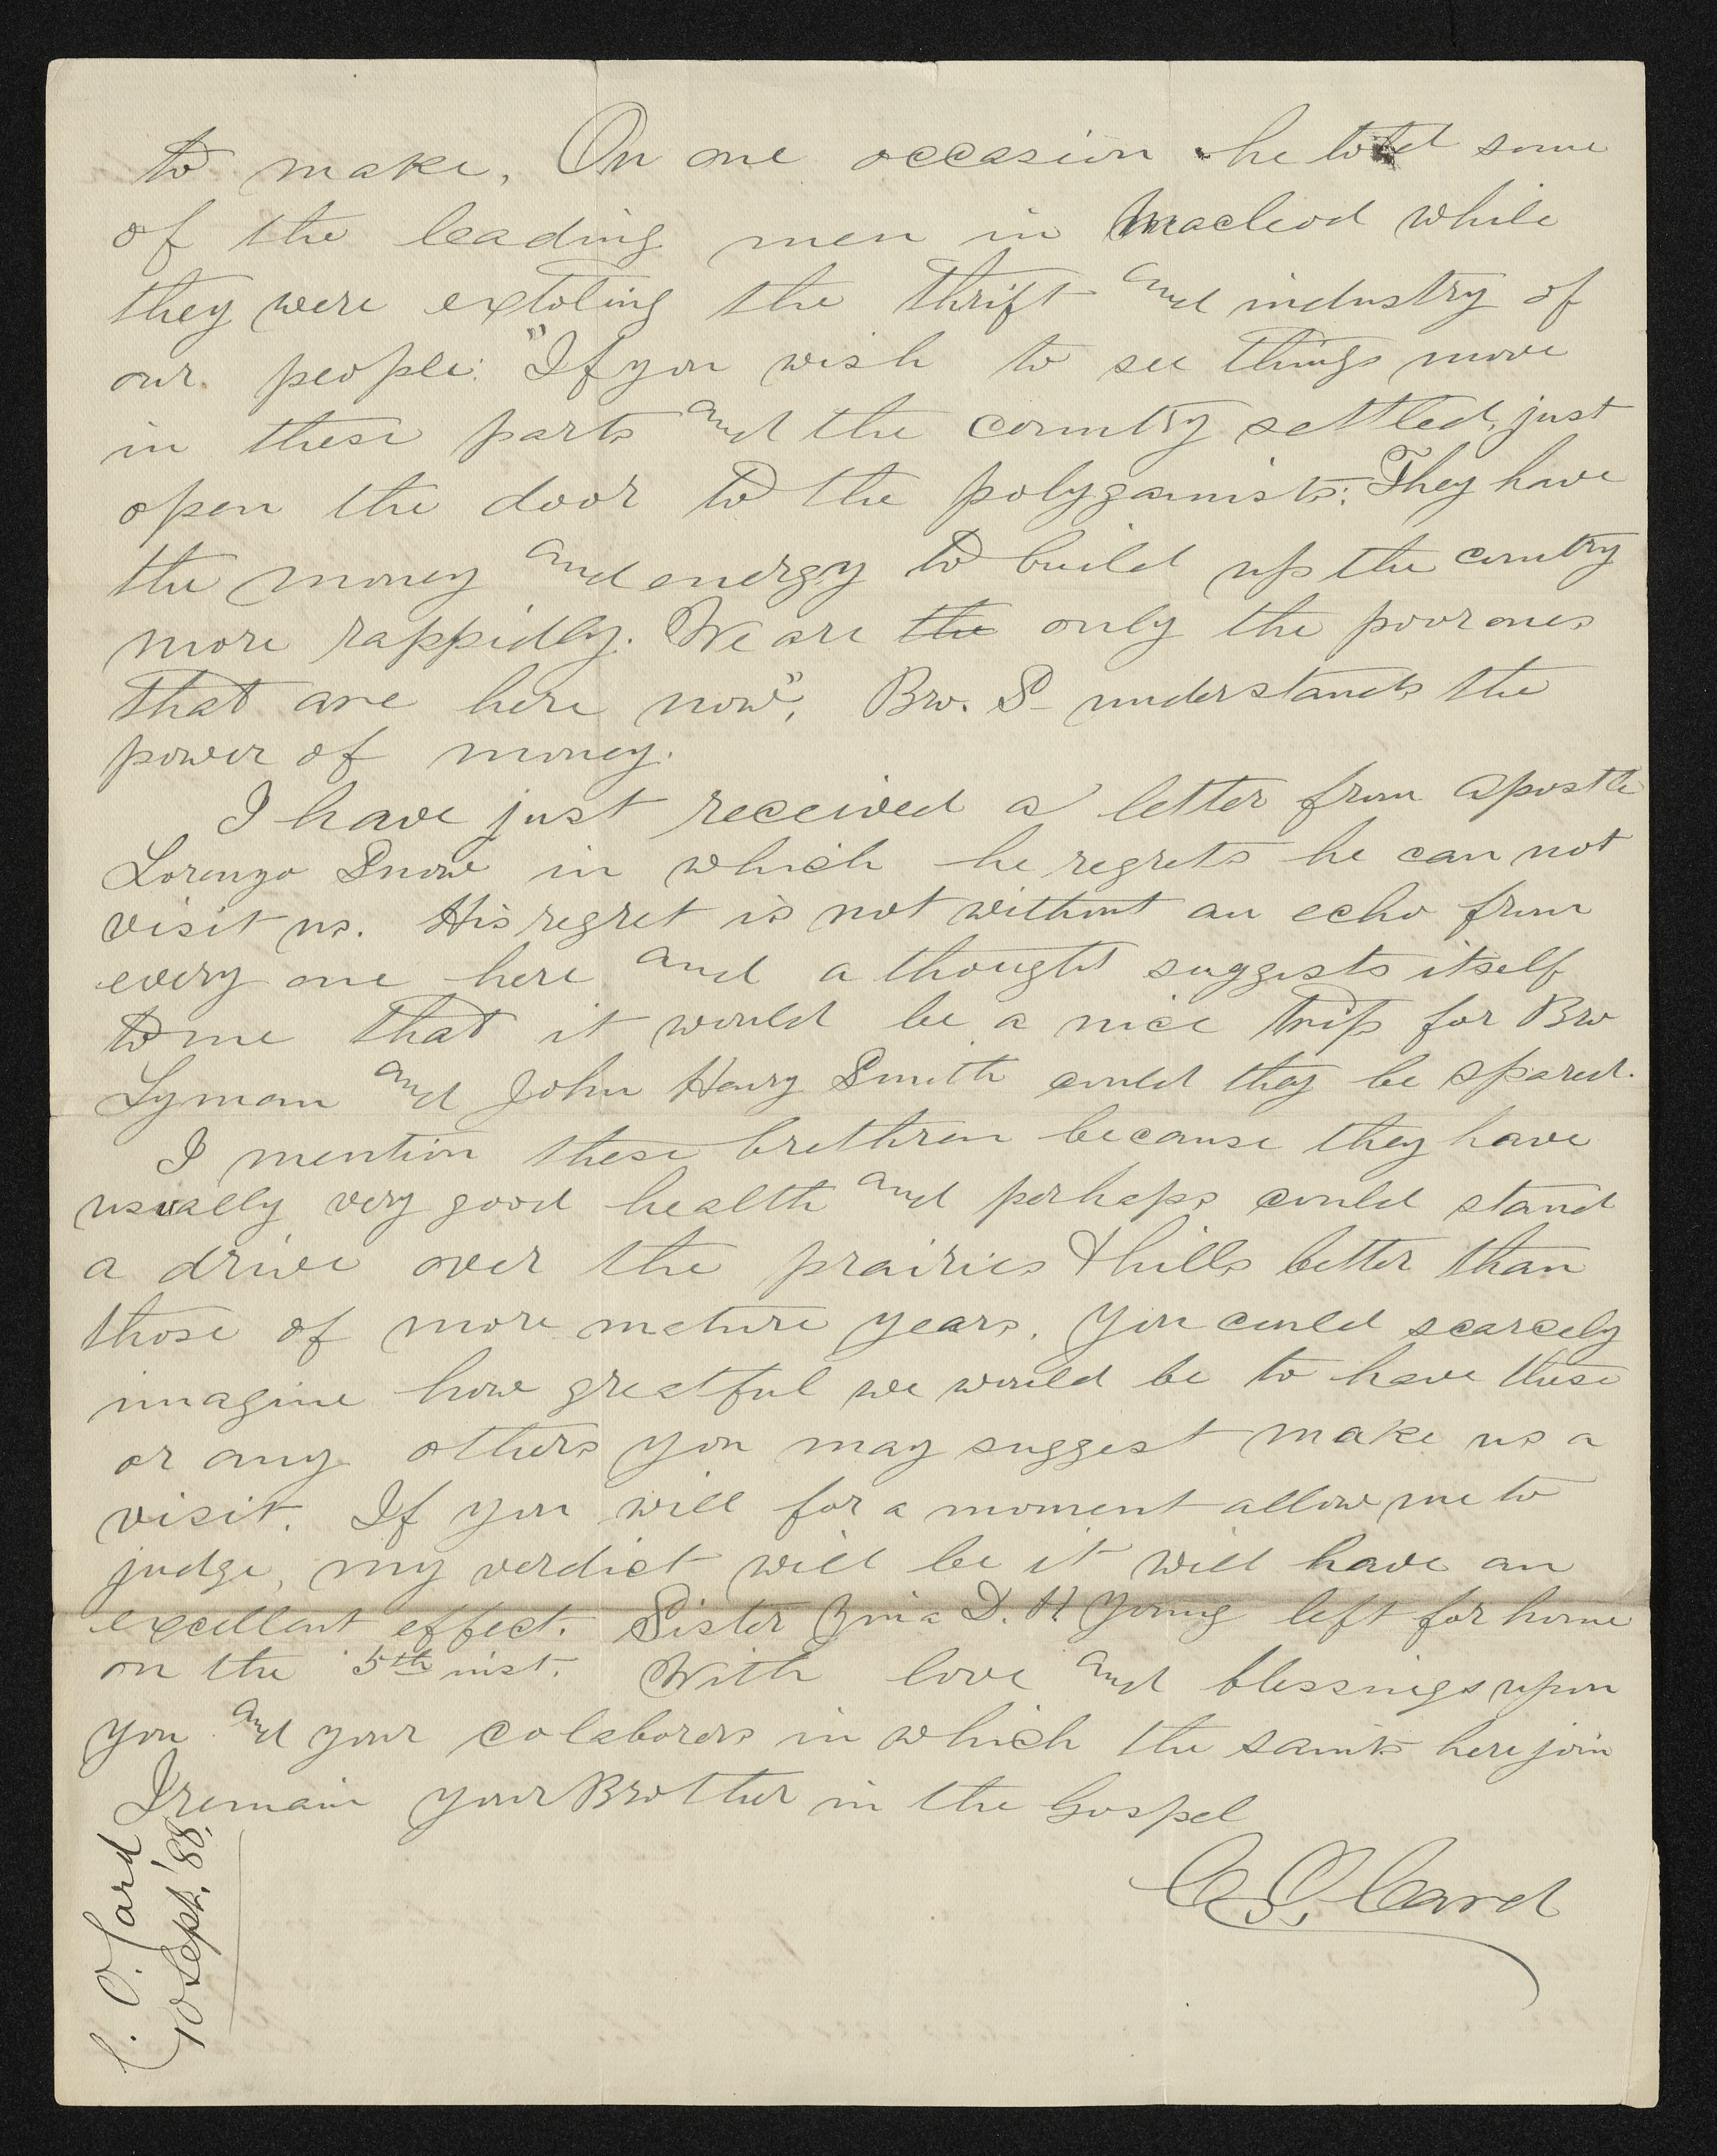 to make. On one occasion he told some
of the leading men in Macleod while
they were extoling the thrift and industry of
our people: "If you wish to see things move
in these parts and the country settled, just
open the door to the polygamists: They have
the money and energy to build up the country
more rappidly. We are the only the poor ones
that are here now", Bro. S- understands the
power of money.
I have just received a letter from Apostle
Lorenzo Snow in which he regrets he can not
visit us. His regret is not without an echo from
every one here and a thought suggests itself
to me that it would be a nice trip for Bro
Lyman and John Henry Smith could they be spared.
I mention these brethren because they have
usually very good health and perhaps could stand
a drive over the prairies & hills better than
those of more mature years. You could scarcely
imagine how greatful we would be to have these
or any others you may suggest make us a
visit. If you will for a moment allow me to
judge, my verdict will be it will have an
excellent effect. Sister Zina D. H Young left for home
on the 5th inst. With love and blessings upon
you and your colaborers in which the saints here join
I remain your Brother in the Gospel
C. O. Card
C. O. Card
10 Sept. '88.